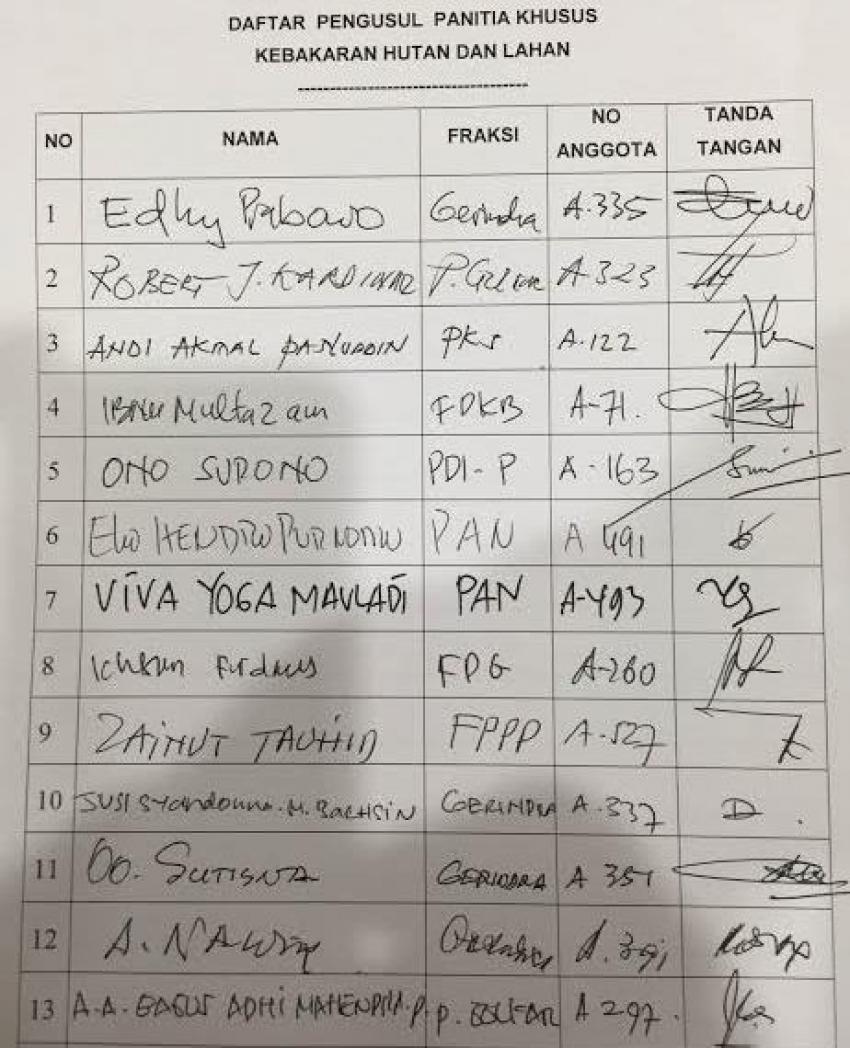 DAFTAR PENGUSUL PANITIA KHUSUS
KEBAKARAN HUTAN DAN LAHAN
NO NAMA FRAKSI NO ANGGOTA TANDA TANGAN
1 Edhy Prabowo Gerindra A.335
2 ROBERT J. KARDINAL P. A-323
3 ANDI AKMAL PASLUDDIN PKS A.122
4 IBNU Multazam FPKB A-71.
5 ONO SURONO PDI-P A-163
6 Eko HENDRO PURNOMO PAN A 491
7 VIVA YOGA MAULADI PAN A-493
8 Ichsan Firdaus FPG A-260
9 ZAINUT TAUHID FPPP A-527
10 SUSI Syahdonna.M. BACHSIN GERINDRA A.337
11 Oo. SUTISNA GERINDRA A 351
12 A. NAWIR A.391
13 A.A. BAGUS ADHI MAHENDRA.P. P. GOLKAR A 297.